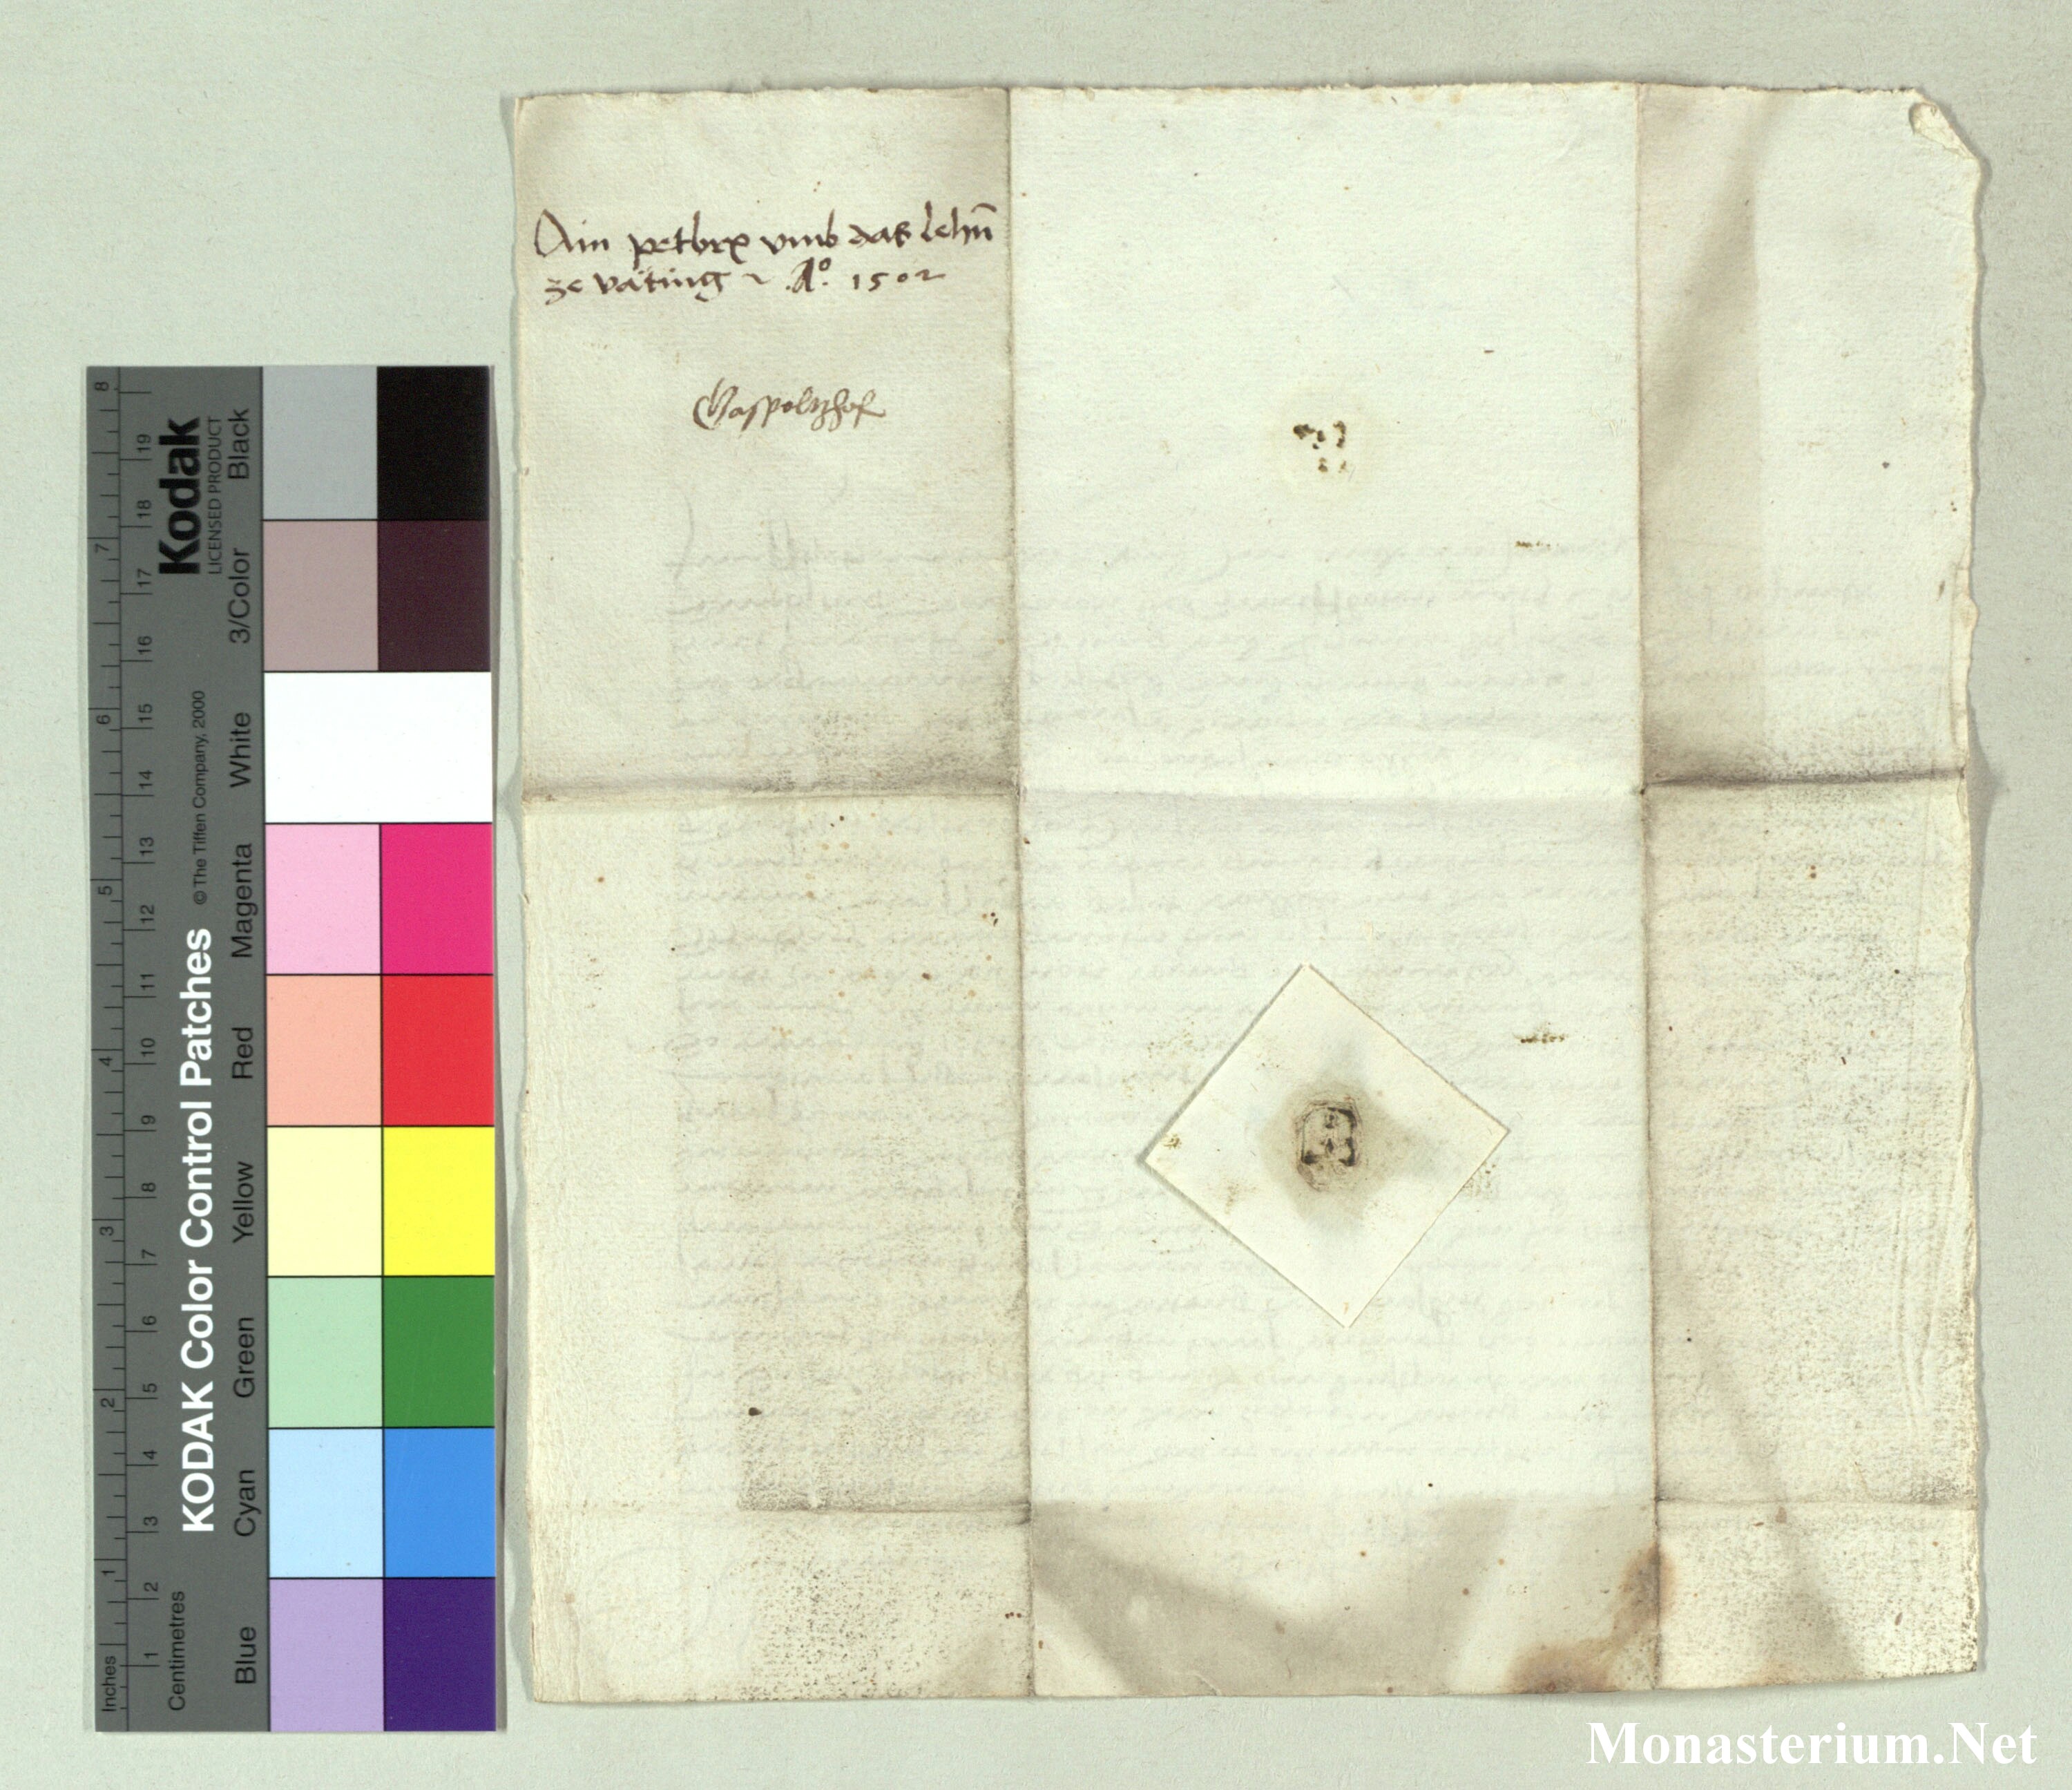 Ain petbrx vmb das lehn̄
ze väting ~ .Aº. 1502
Gaspoltzhof
KODAK Color Control Patches
© The Tiffen Company, 2000
Kodak
LICENSED PRODUCT
Inches
1 2 3 4 5 6 7 8
Centimetres
1 2 3 4 5 6 7 8 9 10 11 12 13 14 15 16 17 18 19
Blue
Cyan
Green
Yellow
Red
Magenta
White
3/Color
Black
Monasterium.Net